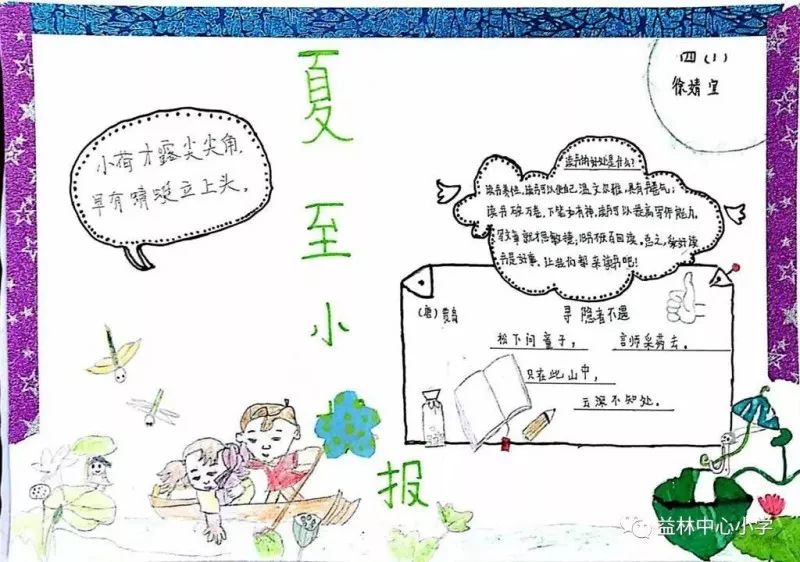 夏至小报
四(1)
徐婧宜
小荷才露尖尖角,
早有晴蜓立上头。
读书的好处是什么?
读书养性,读书可以使自己温文尔雅,具有书卷气;
读书破万卷,下笔如有神,读书可以提高写作能力,
写文章就才思敏捷;旧书不厌百回读。总之,多好读
书是好事,让我们都来读书吧!
(唐)贾岛 寻隐者不遇
松下问童子, 言师采药去。
只在此山中,
云深不知处。
益林中心小学